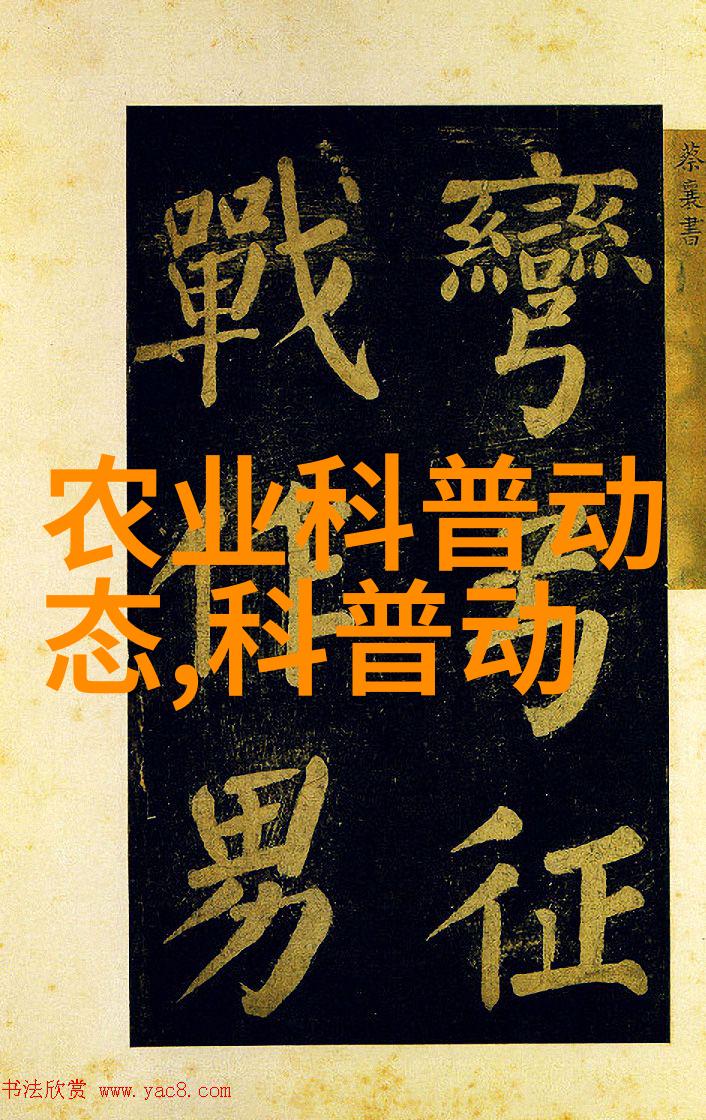 蔡襄書
彎弓征
戰作男
农业科普动
态,科普动
书法欣赏 www.yac8.com